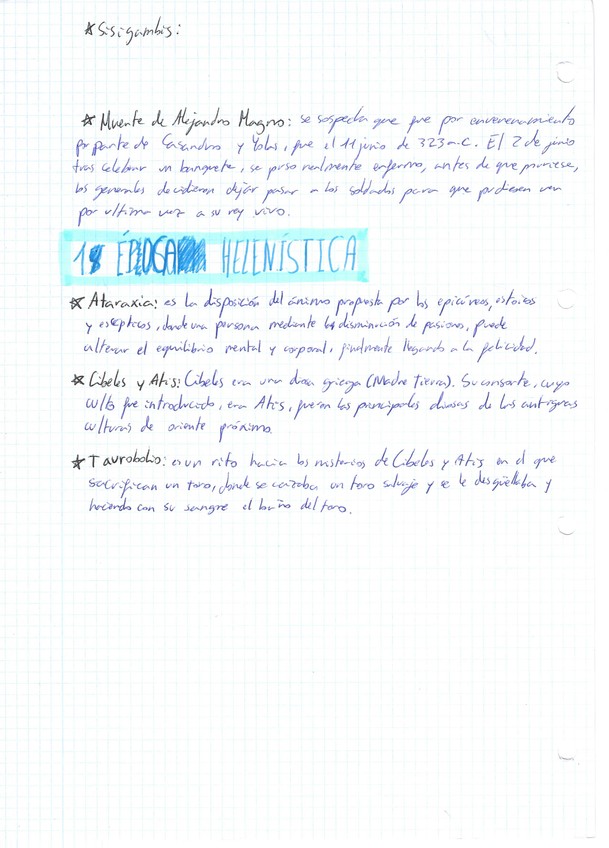 *Sisigambis:
*Muerte de Alejandro Magno: se sospecha que fue por envenenamiento
por parte de Casandro y Yolas, fue el 11 junio de 323 a.C. El 2 de junio
tras celebrar un banquete, se puso realmente enfermo, antes de que muriese,
los generales decidieron dejar pasar a los soldados para que pudiesen ver
por ultima vez a su rey vivo.
ÉPOCA HELENÍSTICA
*Ataraxia: es la disposición del ánimo propuesta por los epicúreos, estoicos
y escépticos, donde una persona mediante la disminución de pasiones, puede
alterar el equilibrio mental y corporal, finalmente llegando a la felicidad.
*Cibeles y Atis: Cibeles era una diosa griega (Madre Tierra). Su consorte, cuyo
culto fue introducido, era Atis, fueron las principales diosas de las antiguas
culturas de oriente próximo.
*Taurobolio: es un rito hacia los misterios de Cibeles y Atis en el que
sacrifican un toro, donde se cazaba un toro salvaje y se le desgüellaba y
haciendo con su sangre el baño del toro.